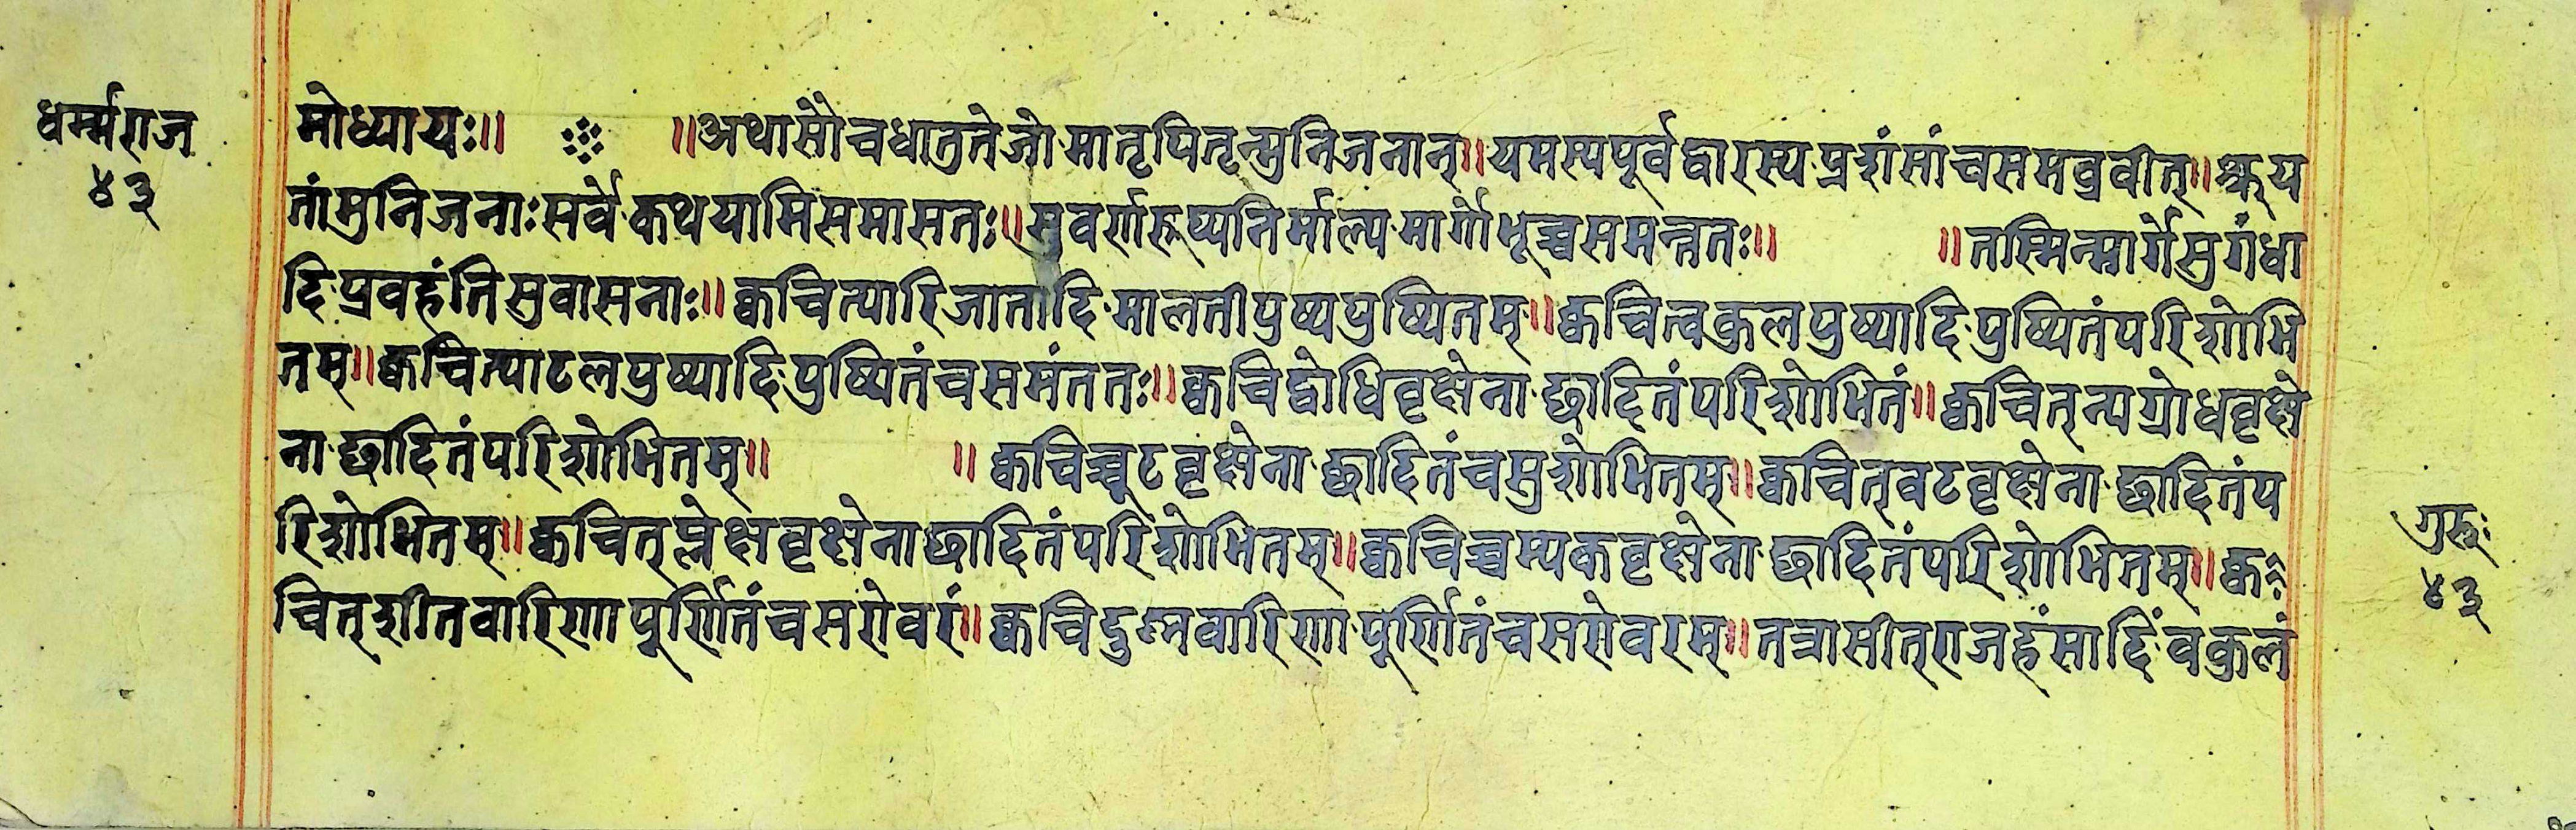 धर्म्मराज
४३
मोध्यायः॥ ॥अथासौच्चधातुतेजोमातृपितृन्मुनिजनान्॥यमस्यपूर्वद्वारस्यप्रशंसांचसमब्रवीत्॥श्रूय
तांमुनिजनाःसर्वेकथयामिसमासतः॥सुवर्णरूप्यनिर्माल्यमार्गोभूच्चसमन्ततः॥ ॥तस्मिन्मार्गेसुगंधा
दिप्रवहंतिसुवासनाः॥क्वचित्पारिजातादिमालतीपुष्पपुष्पितम्॥क्वचित्वकुलपुष्पादिपुष्पितंपरिशोभि
तम्॥क्वचित्पाटलपुष्पादिपुष्पितंचसमंततः॥क्वचिद्बोधिवृक्षेनाछादितंपरिशोभितं॥क्वचित्न्यग्रोधवृक्षे
नाछादितंपरिशोभितम्॥ ॥क्वचिच्चूटवृक्षेनाछादितंचसुशोभितम्॥क्वचित्वटवृक्षेनाछादितंप
रिशोभितम्॥क्वचित्प्लेक्षवृक्षेनाछादितंपरिशोभितम्॥क्वचिच्चम्पकवृक्षेनाछादितंपरिशोभितम्॥क्व
चित्शीतवारिणापूर्णितंचसरोवरं॥क्वचिदुष्नवारिणापूर्णितंचसरोवरम्॥तत्रासीत्राजहंसादिंवकुलं
गुरुः
४३